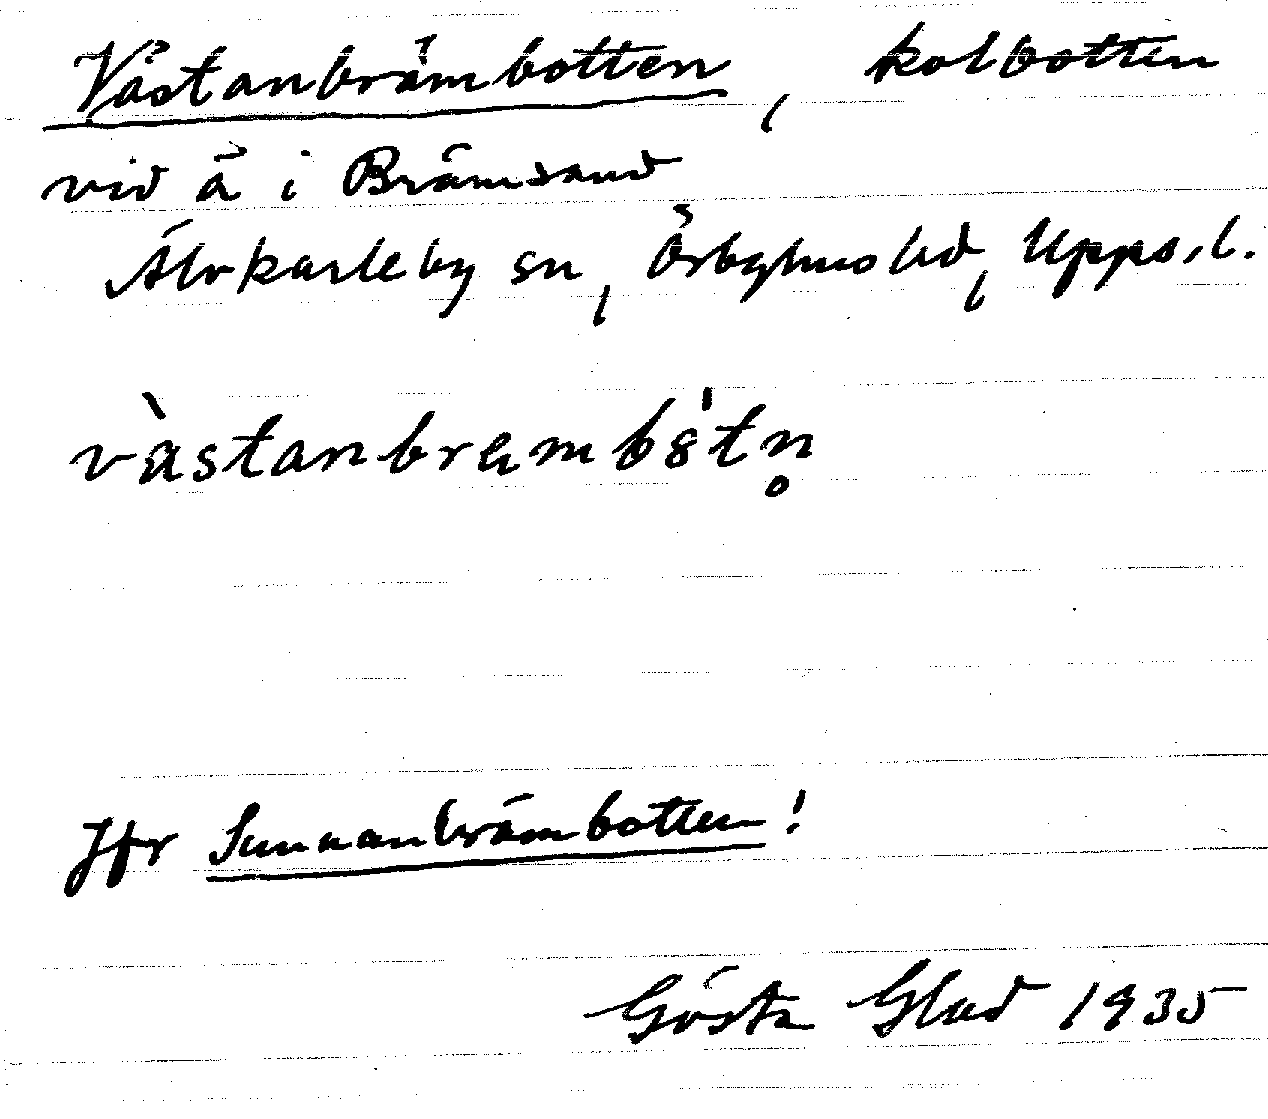 Västanbrämbotten, kolbotten
vid å i Brämsand
Älvkarleby sn, Örbyhus hd, Upps. l.
Jfr Sunnanbrämbotten!
Gösta Glad 1935